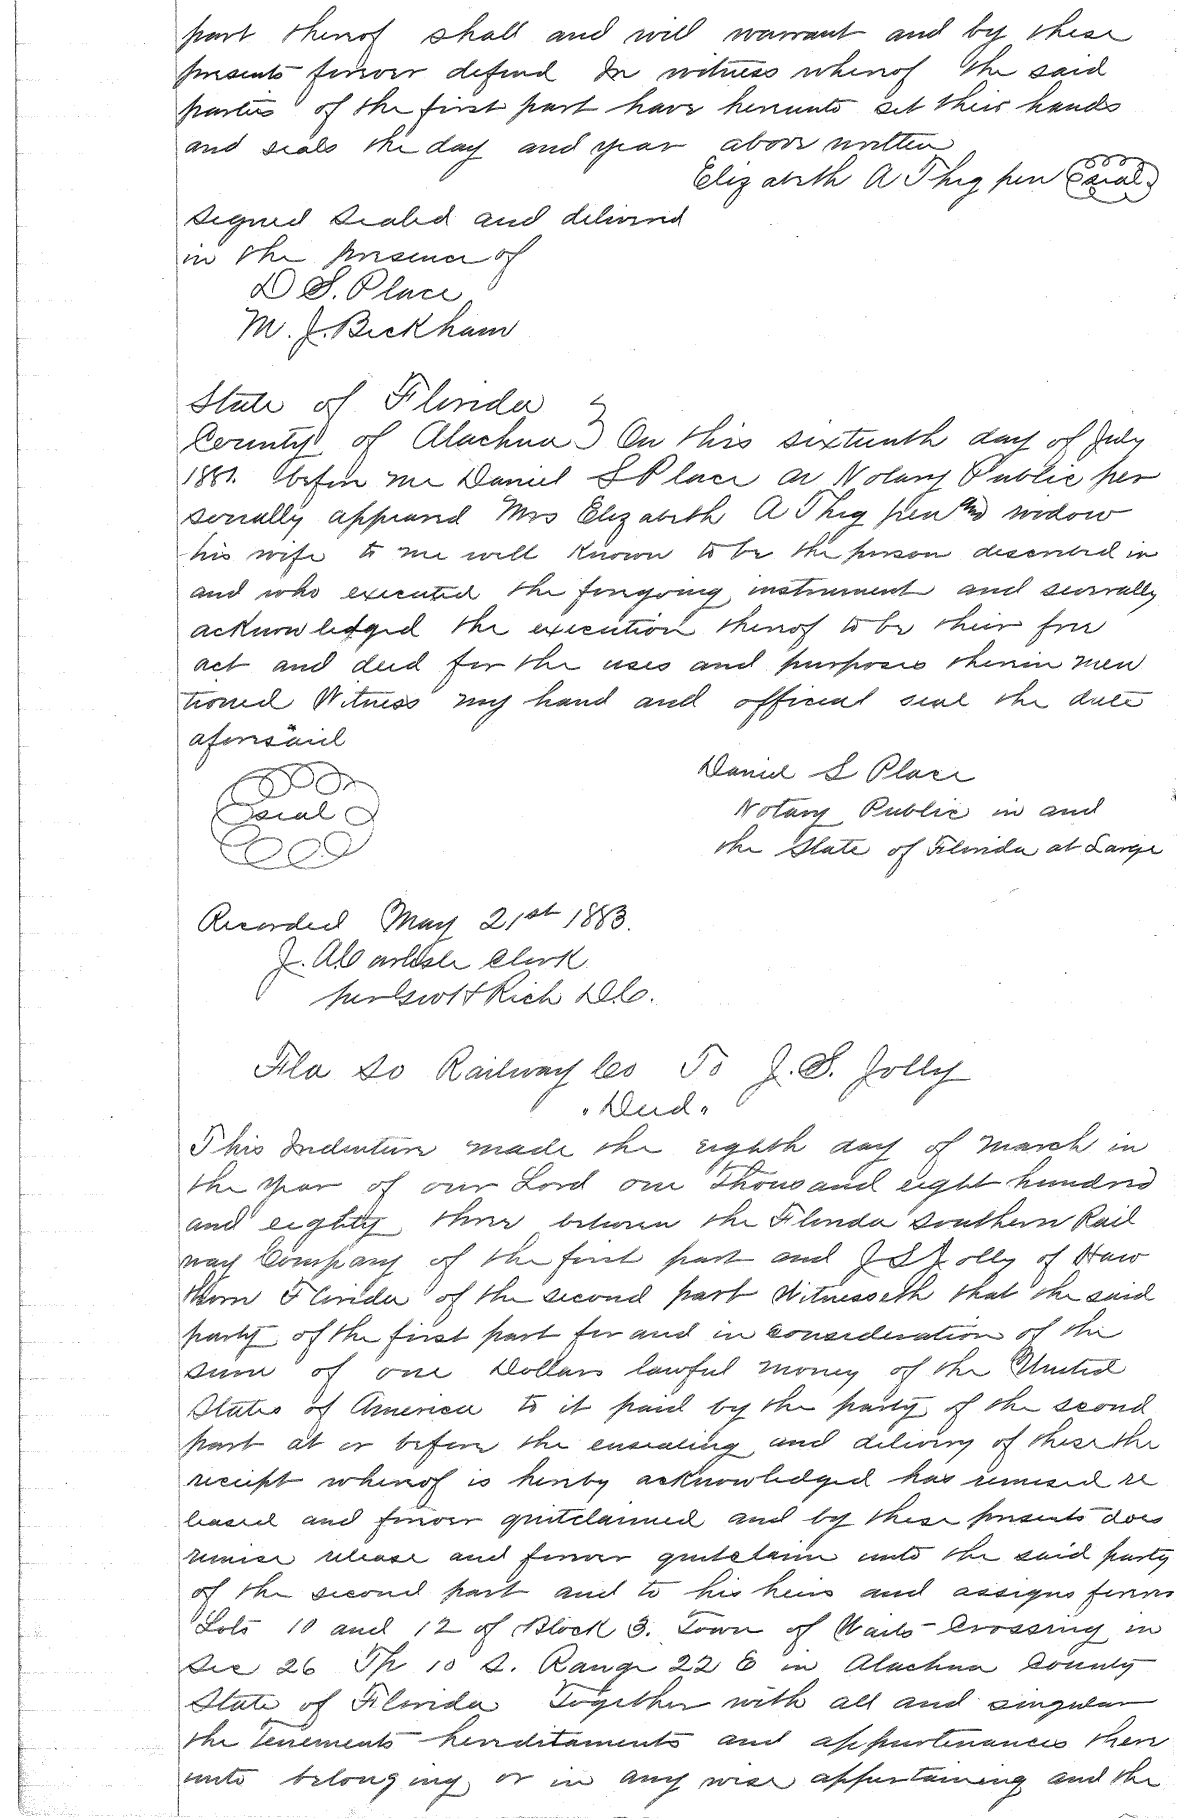 part thereof shall and will warrant and by these
presents forever defend In witness whereof the said
parties of the first part have hereunto set their hands
and seals the day and year above written
Elizabeth A Thigpen seal
signed sealed and delivered
in the presence of
D S. Place
M. J. Beckham
State of Florida
County of Alachua } On this sixteenth day of July
1881. before me Daniel S Place a Notary Public per
sonally appeared Mrs Elizabeth A Thigpen and widow
his wife to me well known to be the person described in
and who executed the foregoing instrument and severally
acknowledged the execution thereof to be their free
act and deed for the uses and purposes therein men
tioned Witness my hand and official seal the date
aforesaid
Daniel S Place
seal
Notary Public in and
the State of Florida at Large
Recorded May 21st 1883.
J. A Carlisle Clerk
per Geo H Rich D C.
Fla So Railway Co To J. S. Jolly
"Deed"
This Indenture made the eighth day of March in
the year of our Lord one Thousand eight hundred
and eighty three between the Florida Southern Rail
way Company of the first part and J S Jolly of Haw
thorn Florida of the second part Witnesseth that the said
party of the first part for and in consideration of the
sum of one Dollars lawful money of the United
States of America to it paid by the party of the second
part at or before the ensealing and delivery of these the
receipt whereof is hereby acknowledged has remised re
leased and forever quitclaimed and by these presents does
remise release and forever quitclaim unto the said party
of the second part and to his heirs and assigns forever
Lots 10 and 12 of Block 3. Town of Waits Crossing in
Sec 26 Tp 10 S. Range 22 E in Alachua County
State of Florida Together with all and singular
the Tenements hereditaments and appurtenances there
unto belonging or in any wise appertaining and the